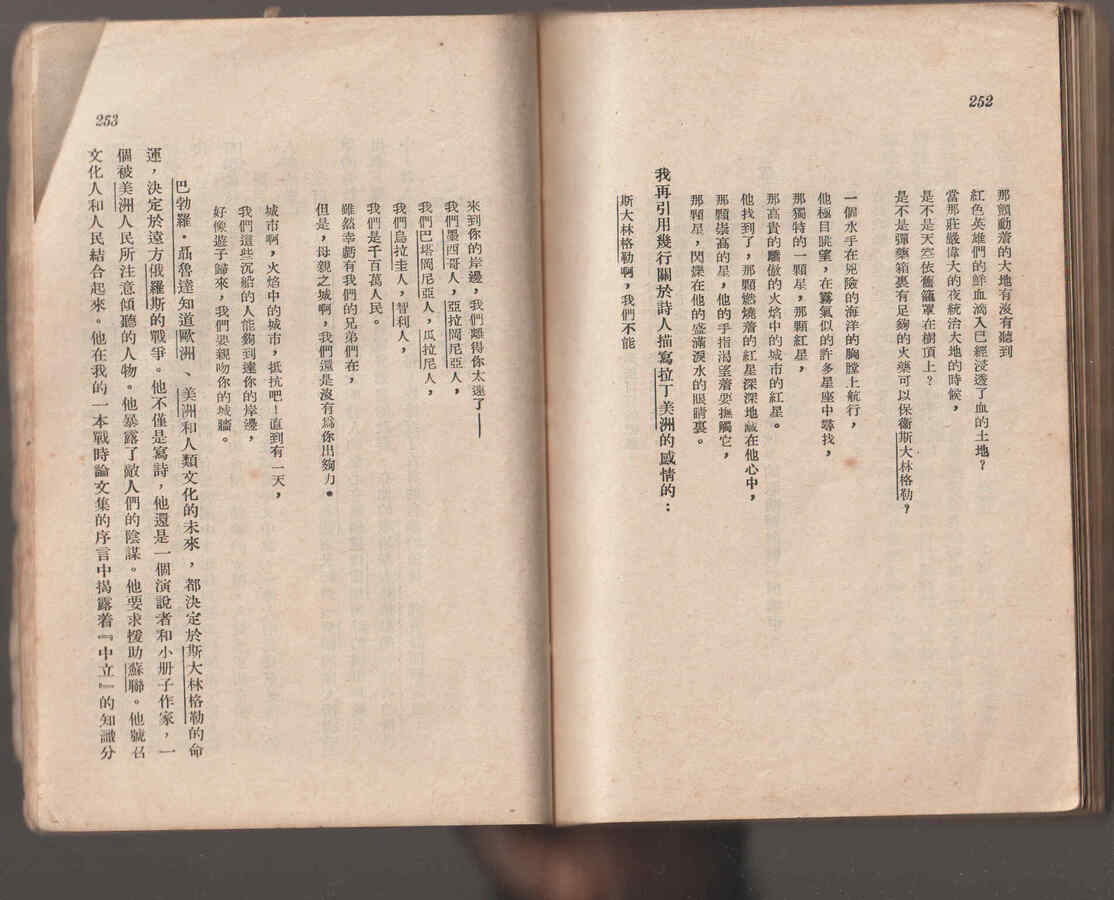 252
那顫動着的大地有沒有聽到
紅色英雄們的鮮血滴入已經浸透了血的土地？
當那莊嚴偉大的夜統治大地的時候，
是不是天空依舊籠罩在樹頂上？
是不是彈藥箱裏有足夠的火藥可以保衞斯大林格勒？
一個水手在兇險的海洋的胸膛上航行，
他極目眺望，在霧氣似的許多星座中尋找，
那獨特的一顆星，那顆紅星，
那高貴的驕傲的火焰中的城市的紅星。
他找到了，那顆燃燒着的紅星深深地藏在他心中，
那顆崇高的星，他的手指渴望着要撫觸它，
那顆星，閃爍在他的盛滿淚水的眼睛裏。
我再引用幾行關於詩人描寫拉丁美洲的感情的：
斯大林格勒啊，我們不能
253
來到你的岸邊，我們離得你太遠了——
我們墨西哥人，亞拉岡尼亞人，
我們巴塔岡尼亞人，瓜拉尼人，
我們烏拉圭人，智利人，
我們是千百萬人民。
雖然幸虧有我們的兄弟們在，
但是，母親之城啊，我們還是沒有爲你出夠力。
城市啊，火焰中的城市，抵抗吧！直到有一天，
我們這些沉船的人能夠到達你的岸邊，
好像遊子歸來，我們要親吻你的城牆。
巴勃羅·聶魯達知道歐洲、美洲和人類文化的未來，都決定於斯大林格勒的命
運，決定於遠方俄羅斯的戰爭。他不僅是寫詩，他還是一個演說者和小册子作家，一
個被美洲人民所注意傾聽的人物。他暴露了敵人們的陰謀。他要求援助蘇聯。他號召
文化人和人民結合起來。他在我的一本戰時論文集的序言中揭露着『中立』的知識分